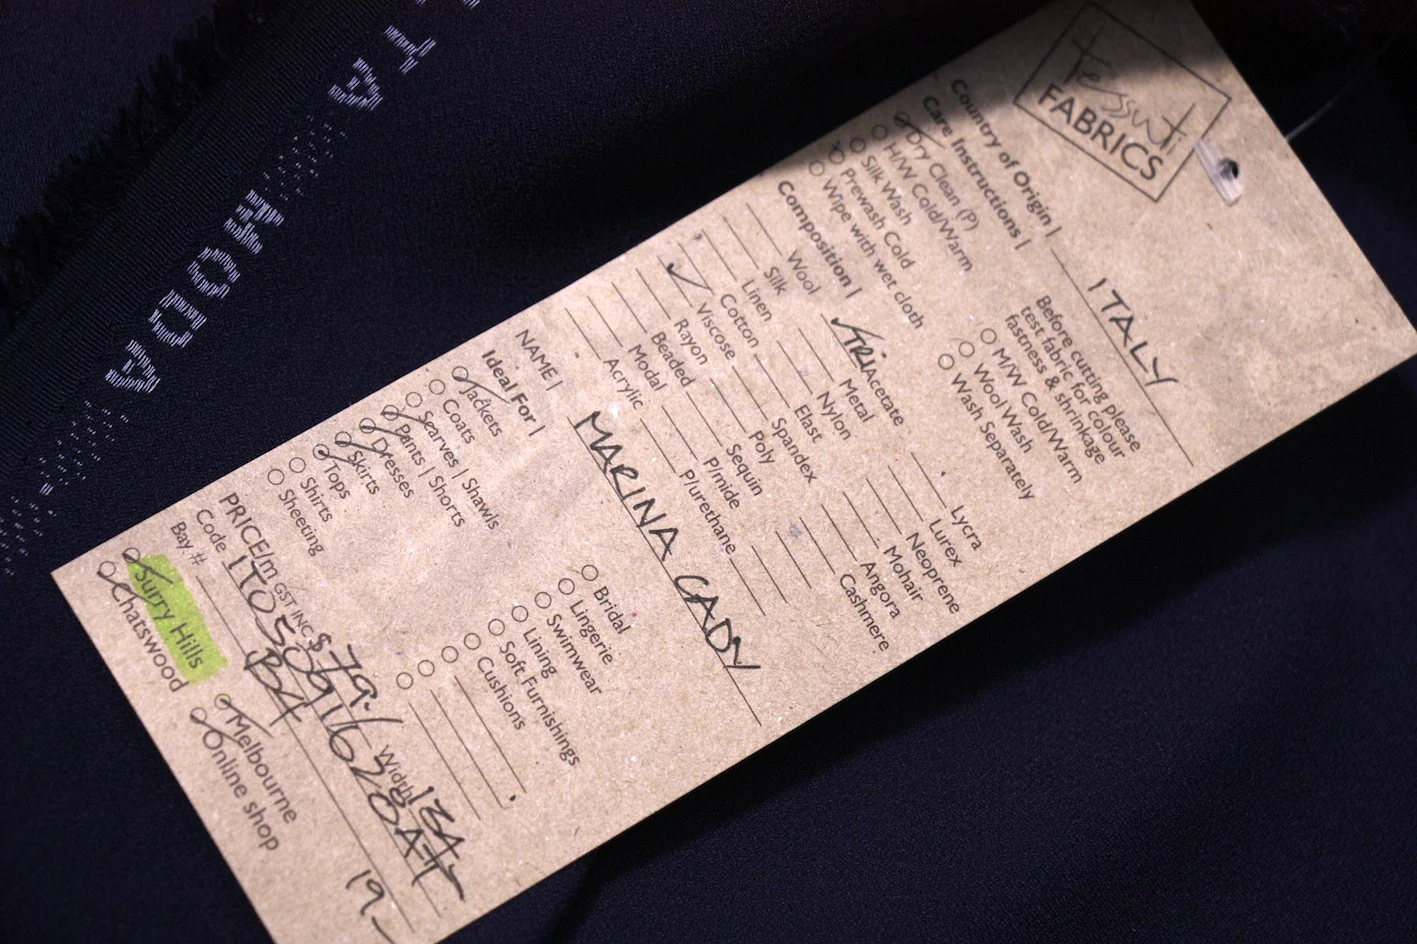 TA
MODA
tessuti
FABRICS
Country of Origin | ITALY
Care Instructions |
Dry Clean (P)
H/W Cold/Warm
Silk Wash
Prewash Cold
Wipe with wet cloth
Before cutting please
test fabric for colour
fastness & shrinkage
M/W Cold/Warm
Wool Wash
Wash Separately
Composition |
Wool
Silk
Linen
Cotton
Viscose
Rayon
Beaded
Modal
Acrylic
TRIAcetate
Metal
Nylon
Elast
Spandex
Poly
Sequin
P/mide
P/urethane
Lycra
Lurex
Neoprene
Mohair
Angora
Cashmere
NAME | MARINA CADY
Ideal For |
Jackets
Coats
Scarves | Shawls
Pants | Shorts
Dresses
Skirts
Tops
Shirts
Sheeting
Bridal
Lingerie
Swimwear
Lining
Soft Furnishings
Cushions
PRICE/m GST INC $79. Width
Code
Bay #
Surry Hills
Chatswood
Melbourne
Online shop
19